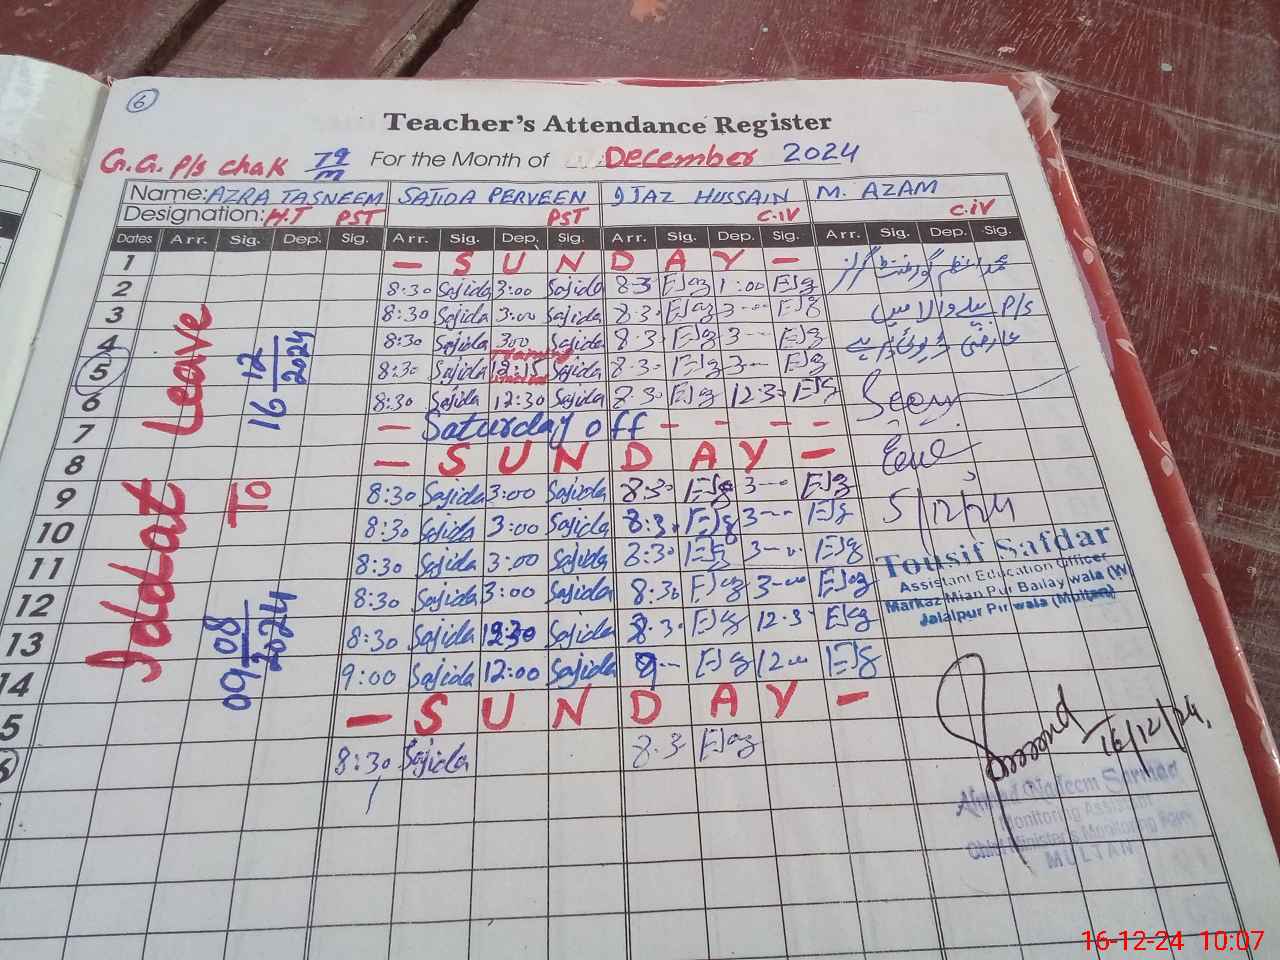 6
Teacher's Attendance Register
G.G. P/S chak 79/M For the Month of December 2024
Name: AZRA TASNEEM SAJIDA PERVEEN IJAZ HUSSAIN M. AZAM
Designation: H.T PST PST C.IV C.IV
Dates Arr. Sig. Dep. Sig. Arr. Sig. Dep. Sig. Arr. Sig. Dep. Sig. Arr. Sig. Dep. Sig.
1 — S U N D A Y —
2 8:30 Sajida 3:00 Sajida 8.3 EJaz 1:00 EJaz
3 8:30 Sajida 3:00 Sajida 8.3 EJaz 3 EJaz P/S
4 8:30 Sajida 3:00 Sajida 8.3 EJaz 3 EJaz
5 8:30 Sajida 12:15 Sajida 8.3 EJaz 3 EJaz
6 8:30 Sajida 12:30 Sajida 8.3 EJaz 12.3 EJaz
7 — Saturday off - - - - -
8 — S U N D A Y —
9 8:30 Sajida 3:00 Sajida 8.3 EJaz 3 EJaz
10 8:30 Sajida 3:00 Sajida 8.3 EJaz 3 EJaz 5/12/24
11 8:30 Sajida 3:00 Sajida 8.3 EJaz 3 EJaz
12 8:30 Sajida 3:00 Sajida 8.3 EJaz 3 EJaz
13 8:30 Sajida 12:30 Sajida 8.3 EJaz 12.3 EJaz
14 9:00 Sajida 12:00 Sajida 9 EJaz 12 EJaz
5 — S U N D A Y —
6 8:30 Sajida 8.3 EJaz
Iddat Leave
09 08/2024 To 16 12/2024
Tousif Safdar
Assistant Education Officer
Markaz Mian Pur Bailay wala (W)
Jalalpur Pirwala (Multan)
16/12/24
Ahmad Nadeem Sarmad
Monitoring Assistant
MULTAN
16-12-24 10:07